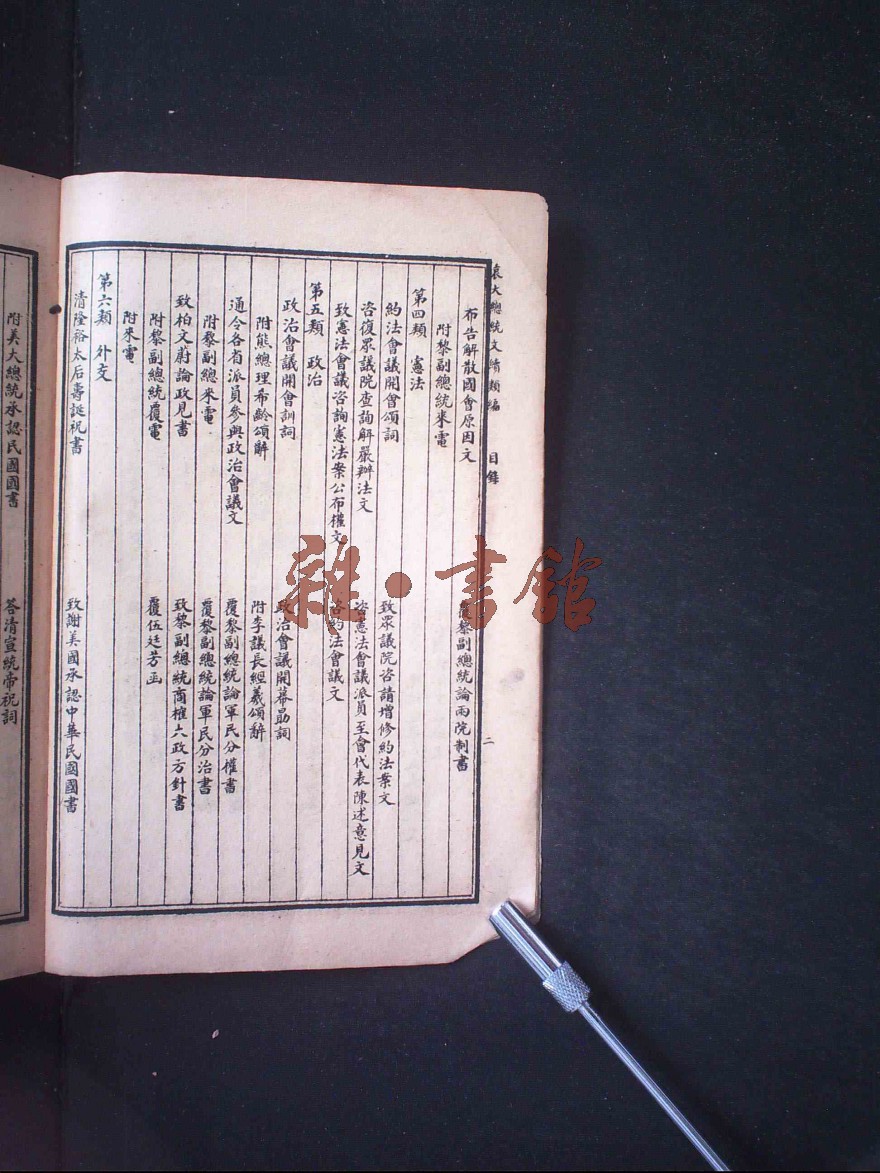 袁大總統文牘類編　目錄　二
布告解散國會原因文　覆黎副總統論兩院制書
附黎副總統來電
第四類　憲法
約法會議開會頌詞　致眾議院咨請增修約法案文
咨復眾議院查詢解嚴辦法文　咨憲法會議派員至會代表陳述意見文
致憲法會議咨詢憲法案公布權文　咨約法會議文
第五類　政治
政治會議開會訓詞　政治會議開幕勗詞
附熊總理希齡頌辭　附李議長經羲頌辭
通令各省派員參與政治會議文　覆黎副總統論軍民分權書
附黎副總來電　覆黎副總統論軍民分治書
致柏文蔚論政見書　致黎副總統商榷六政方針書
附黎副總統覆電　覆伍廷芳函
附來電
第六類　外交
清隆裕太后壽誕祝書　致謝美國承認中華民國國書
附美大總統承認民國國書　答清宣統帝祝詞
雜·書館